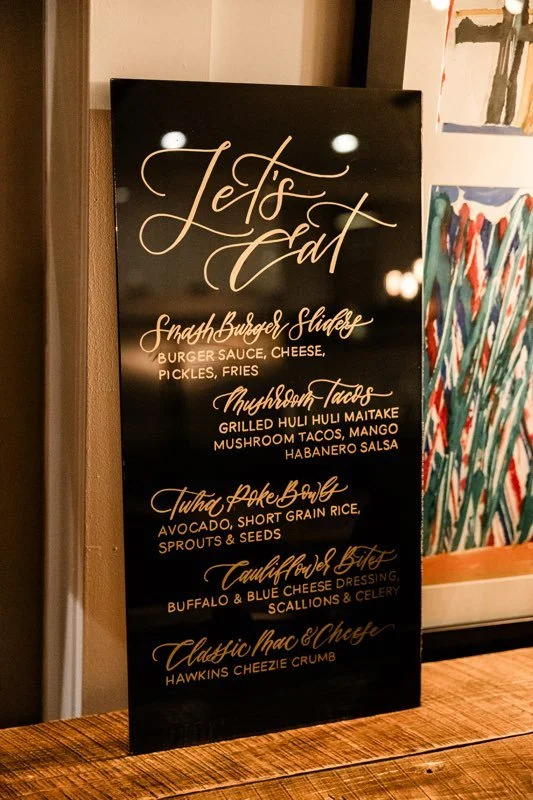 Let's
Eat
Smash Burger Sliders
BURGER SAUCE, CHEESE,
PICKLES, FRIES
Mushroom Tacos
GRILLED HULI HULI MAITAKE
MUSHROOM TACOS, MANGO
HABANERO SALSA
Tuna Poke Bowls
AVOCADO, SHORT GRAIN RICE,
SPROUTS & SEEDS
Cauliflower Bites
BUFFALO & BLUE CHEESE DRESSING,
SCALLIONS & CELERY
Classic Mac & Cheese
HAWKINS CHEEZIE CRUMB